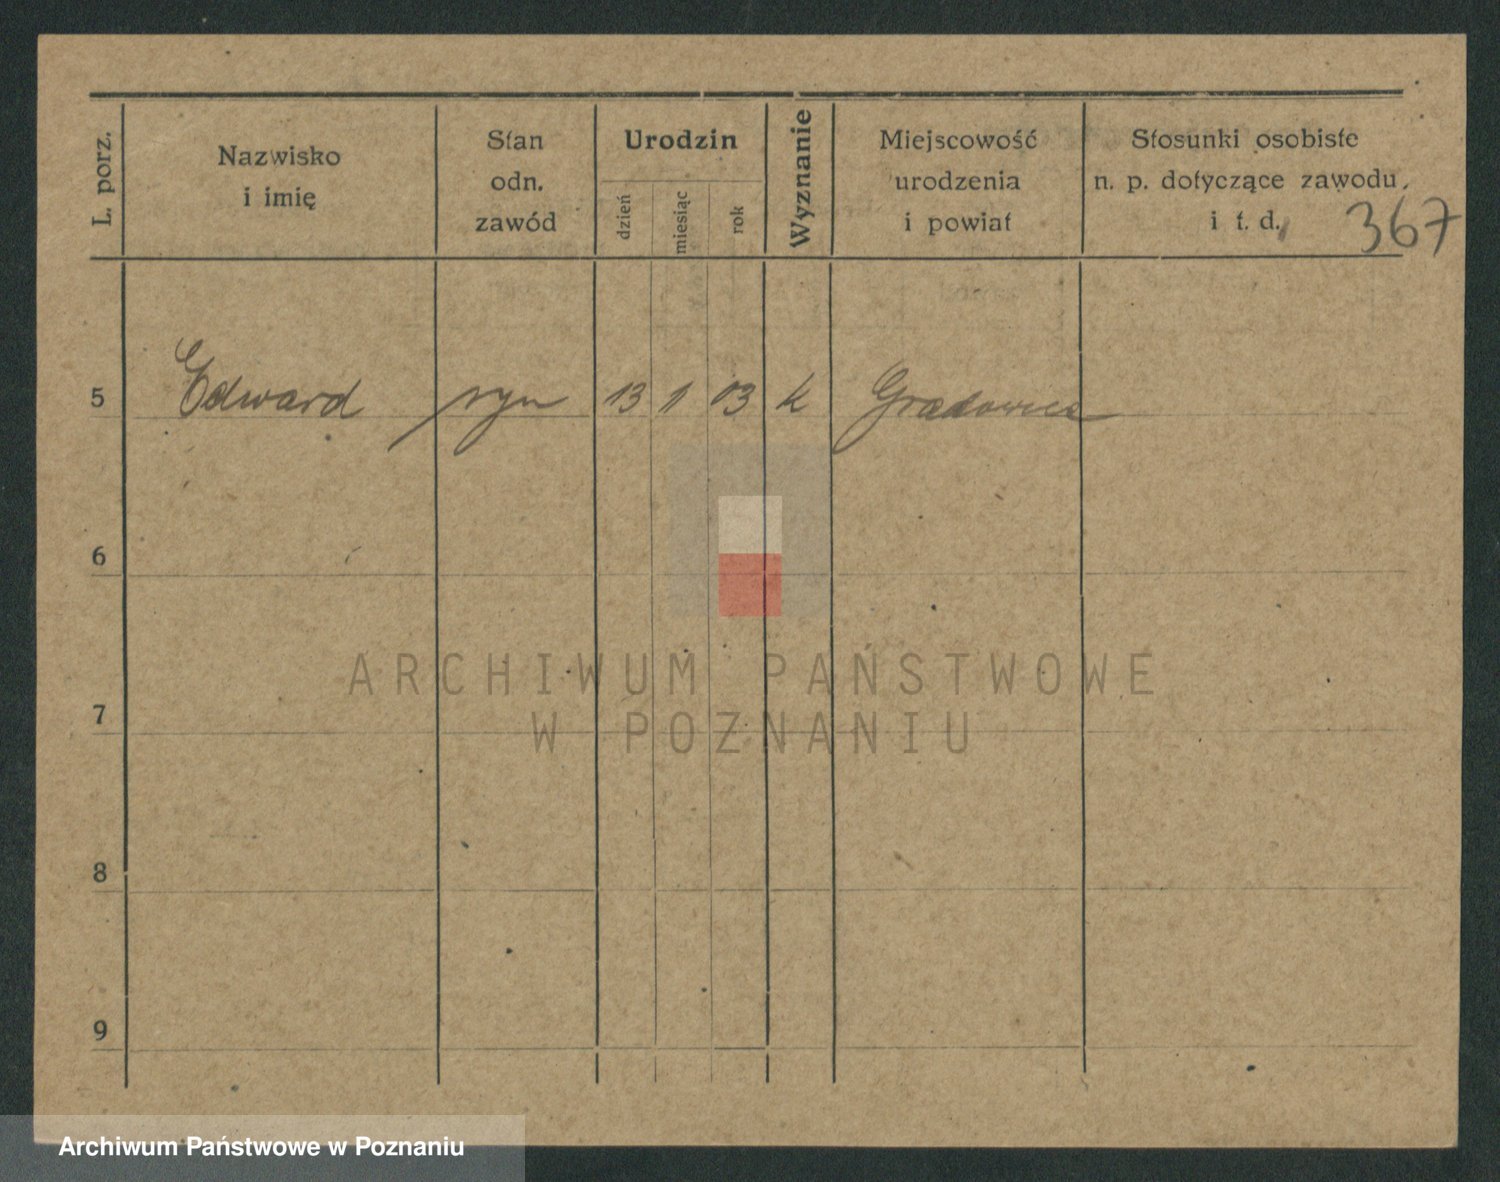 L. porz.
Nazwisko
i imię
Stan
odn.
zawód
Urodzin
dzień
miesiąc
rok
Wyznanie
Miejscowość
urodzenia
i powiat
Stosunki osobiste
n. p. dotyczące zawodu,
i t. d.
367
5 Edward syn 13 1 03 k
6
7
8
9
ARCHIWUM PAŃSTWOWE
W POZNANIU
Archiwum Państwowe w Poznaniu